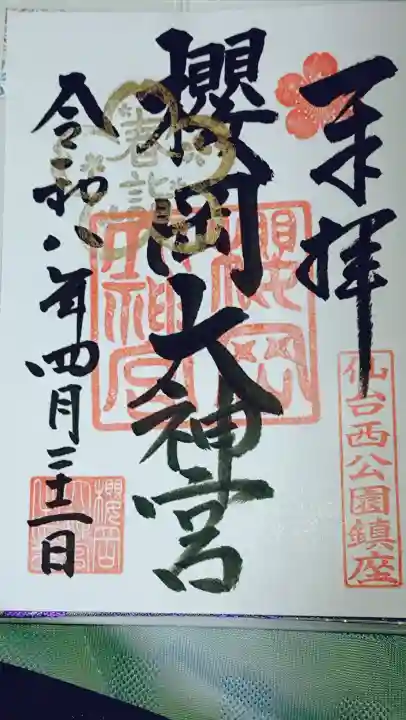 奉拝
仙台西公園鎮座
櫻岡大神宮
櫻岡
大神宮
春詣
令和八年四月二十二日